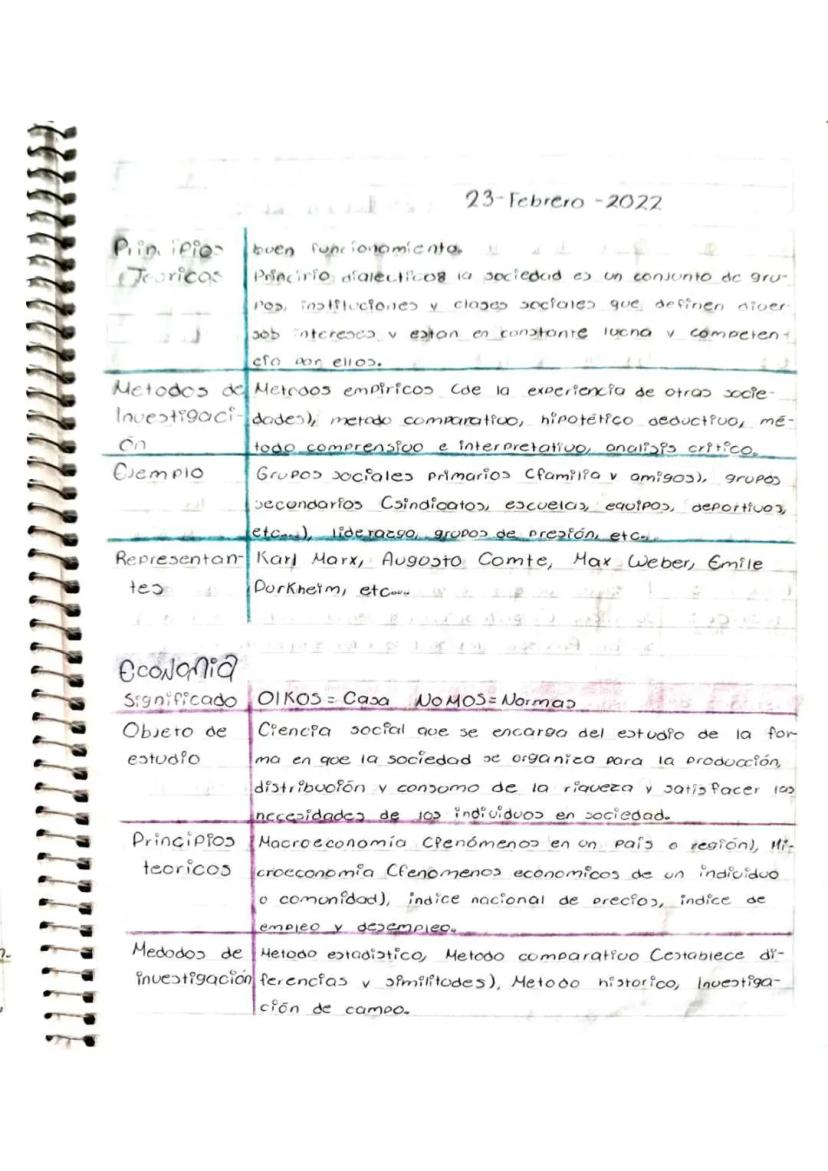 23-Febrero-2022
Principios buen funcionamiento.
Teoricos Principio dialecticos la sociedad es un conjunto de gru-
pos, instituciones y clases sociales que definen diver
sob intereses y estan en constante lucha y competen-
cia por ellos.
Metodos de Metodos empiricos (de la experiencia de otras socie-
Investigaci- dades), metodo comparativo, hipotético deductivo, mé-
ón todo comprensivo e interpretativo, analisis critico.
Ejemplo Grupos sociales primarios (familia y amigos), grupos
secundarios (sindicatos, escuelas, equipos, deportivos,
etc...), liderazgo, grupos de presión, etc..
Representan- Karl Marx, Augosto Comte, Max Weber, Emile
tes Durkheim, etc...
Economia
Significado OIKOS=Casa NOMOS=Normas
Objeto de Ciencia social que se encarga del estudio de la for-
estudio ma en que la sociedad se organiza para la producción,
distribución y consumo de la riqueza y satisfacer las
necesidades de los individuos en sociedad.
Principios Macroeconomía (fenómenos en un país o región), Mi-
teoricos croeconomía (fenomenos economicos de un individuo
o comunidad), índice nacional de precios, índice de
empleo y desempleo.
Medodos de Metodo estadistico, Metodo comparativo (establece di-
investigación ferencias y similitudes), Metodo historico, Investiga-
ción de campo.